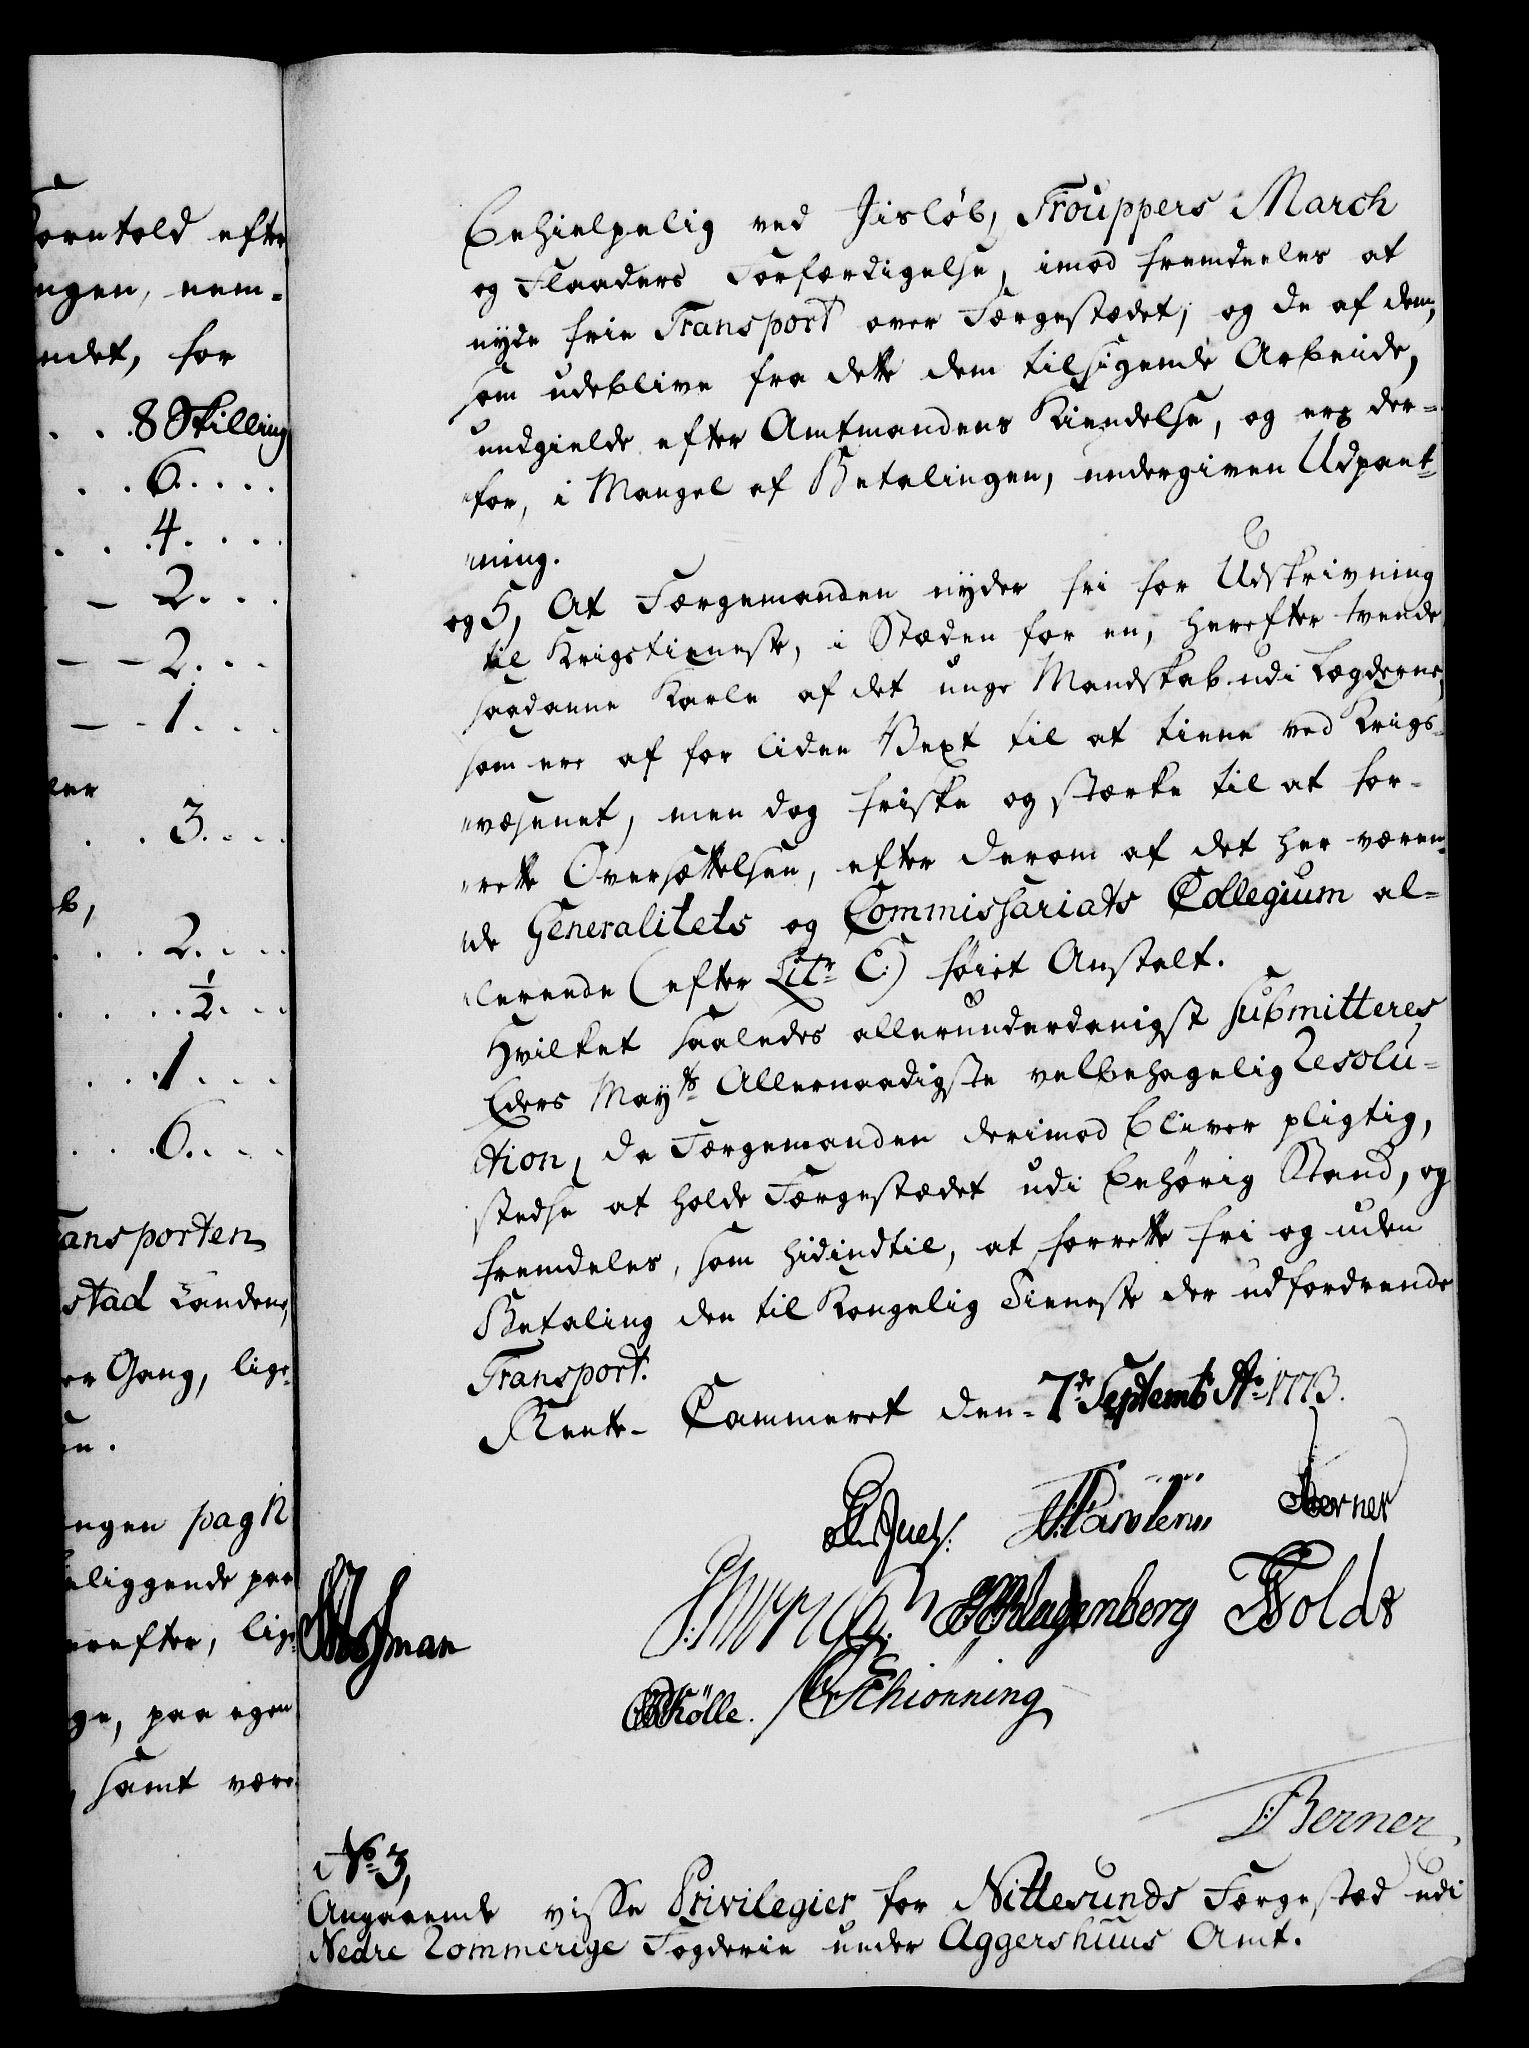 orntold efter
ngen, nem-
ndet, for
. . 8 Skilling
. . 6. . . .
. . 4. . . .
- 2. . .
- - 2. . .
- - 1. . .
ler
. . 3. . . .
b,
. . . 2. . . .
. . . . ½. . .
. . . 1. . . .
. . . 6. . . .
ansporten
stad Landens,
er Gang, lige-
en.
ngen pag 12
eliggende paa
erefter, lige-
ge, paa egen
, samt være
behielpelig ved Jisløb, Trouppers March
og Flaaders Forfærdigelse, imod fremdeeles at
nyde frie Transport over Færgestædet; og de af dem,
som udeblive fra dette dem tilsigende Arbeide,
undgielde efter Amtmandens Kiendelse, og ere der-
for, i Mangel af Betalingen, undergiven Udpant-
ning.
og 5, At Færgemanden nyder fri for Udskrivning
til Krigstieneste, i Stæden for en, herefter tvende
saadanne Karle af det unge Mandskab udi Lægderne,
som ere af for liden Vext til at tiene ved Krigs-
væsenet, men dog friske og stærke til at for-
rette Oversættelsen, efter derom af det her væren-
de Generalitets og Commissariats Collegium al-
lerende (efter Litr C.) føiet Anstalt.
Hvilket saaledes allerunderdanigst submitteres
Eders Mayts Allernaadigste velbehagelig Resolu-
tion, da Færgemanden derimod bliver pligtig,
stedse at holde Færgestædet udi behørig Stand, og
fremdeles, som hidindtil, at forrette fri og uden
Betaling den til Kongelig Tieneste der udfordrende
Transport.
Rente-Cammeret den 7de Septembr Ao 1773.
Juel. Berner
Klagenberg Holdt
Schiønning
Berner
No 3,
Angaaende visse Privilegier for Nittesunds Færgestæd udi
Nedre Rommerige Fogderie under Aggershuus Amt.